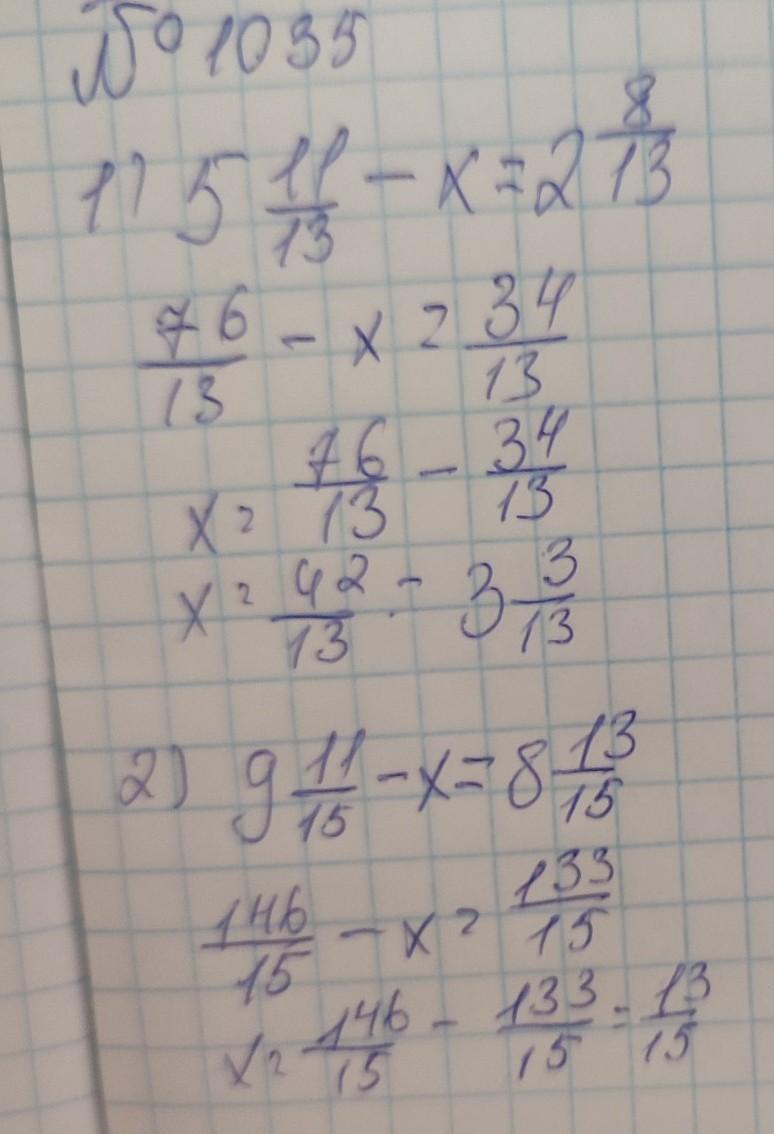 № 1035
1) 5 11/13 - x = 2 8/13
76/13 - x = 34/13
x = 76/13 - 34/13
x = 42/13 = 3 3/13
2) 9 11/15 - x = 8 13/15
146/15 - x = 133/15
x = 146/15 - 133/15 = 13/15